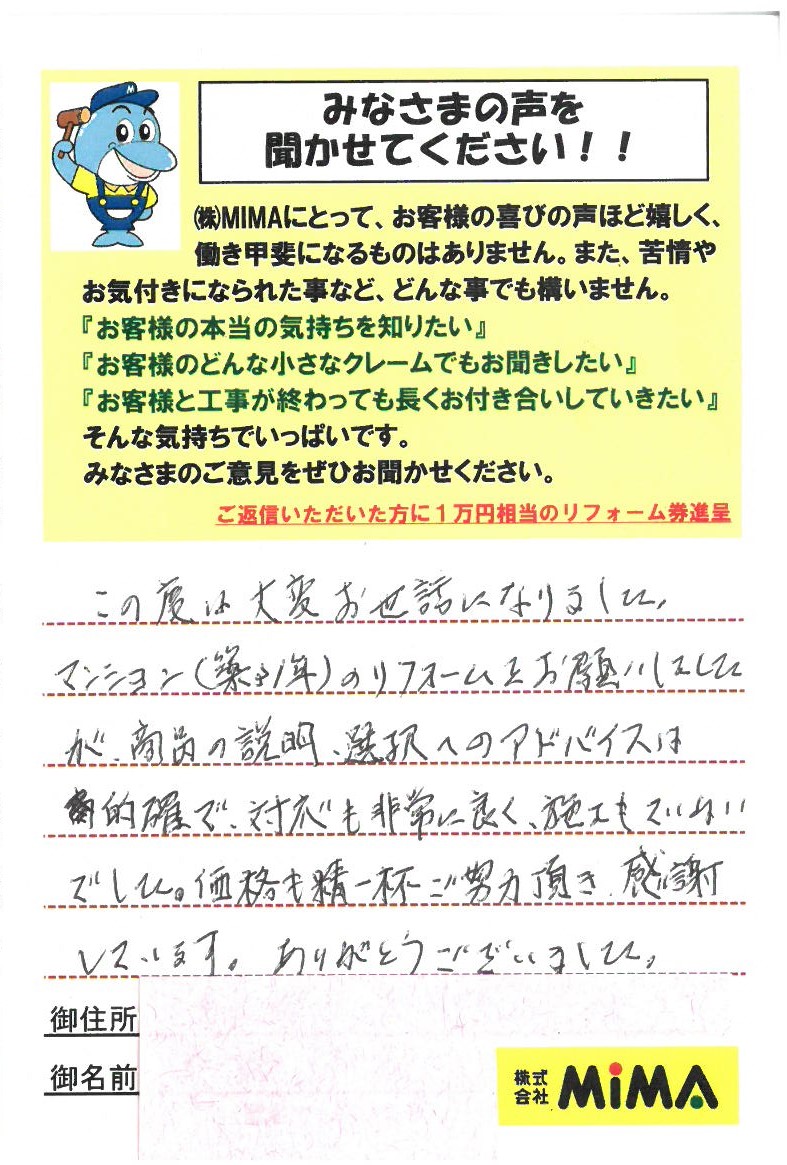 M
みなさまの声を
聞かせてください！！
㈱MIMAにとって、お客様の喜びの声ほど嬉しく、
働き甲斐になるものはありません。また、苦情や
お気付きになられた事など、どんな事でも構いません。
『お客様の本当の気持ちを知りたい』
『お客様のどんな小さなクレームでもお聞きしたい』
『お客様と工事が終わっても長くお付き合いしていきたい』
そんな気持ちでいっぱいです。
みなさまのご意見をぜひお聞かせください。
ご返信いただいた方に１万円相当のリフォーム券進呈
この度は大変お世話になりました。
マンション(築31年)のリフォームをお願いしました
が、商品の説明、選択へのアドバイスは
的確で、対応も非常に良く、施工もていねい
でした。価格も精一杯ご努力頂き、感謝
しています。ありがとうございました。
御住所
御名前
株式会社 MiMA